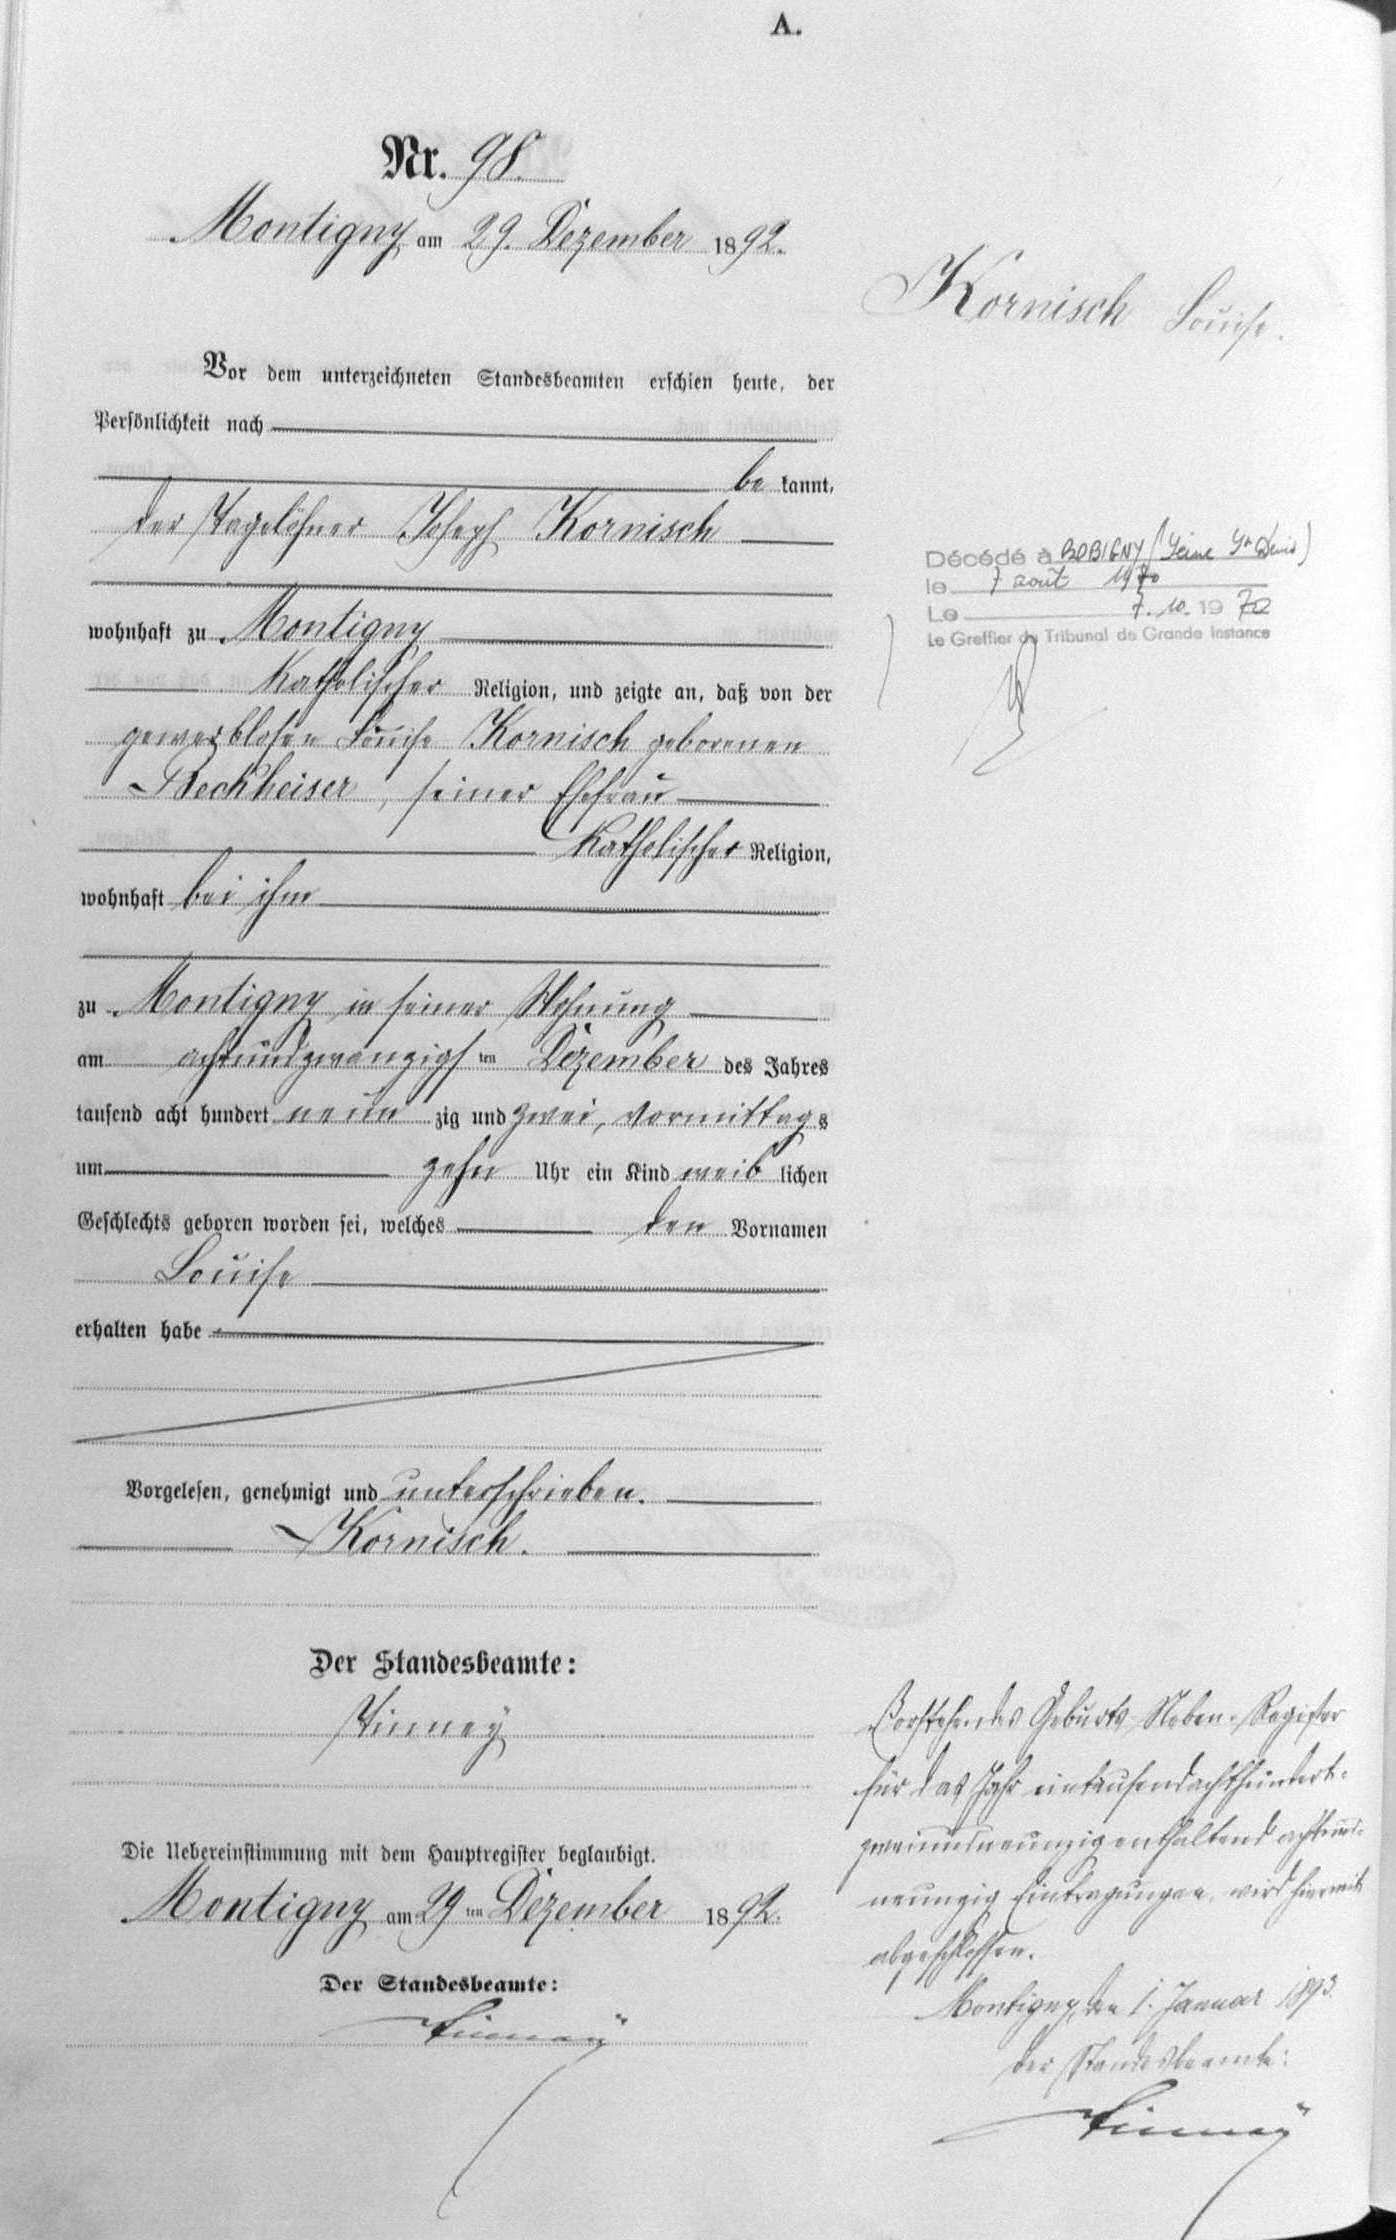 A.
Nr. 98.
Montigny am 29. Dezember 1892.
Kornisch Louise.
Vor dem unterzeichneten Standesbeamten erschien heute, der
Persönlichkeit nach
be kannt,
der Tagelöhner Joseph Kornisch
wohnhaft zu Montigny
katholischer Religion, und zeigte an, daß von der
gewerblosen Louise Kornisch geborenen
Beckheiser, seiner Ehefrau
katholischer Religion,
wohnhaft bei ihm
zu Montigny in seiner Wohnung
am achtundzwanzigs ten Dezember des Jahres
tausend acht hundert neun zig und zwei, vormittags
um zehn Uhr ein Kind weib lichen
Geschlechts geboren worden sei, welches den Vornamen
Louise
erhalten habe
Vorgelesen, genehmigt und unterschrieben.
Kornisch.
Der Standesbeamte:
Die Uebereinstimmung mit dem Hauptregister beglaubigt.
Montigny am 29 ten Dezember 1892.
Der Standesbeamte:
Décédé à BOBIGNY (Seine St Denis)
le 7 août 1970
Le 7. 10. 1970
Le Greffier du Tribunal de Grande Instance
Vorstehendes Geburts-Neben-Register
für das Jahr eintausendachthundert-
zweiundneunzig enthaltend achtund-
neunzig Eintragungen, wird hiermit
abgeschlossen.
Montigny, den 1. Januar 1893.
der Standesbeamte: